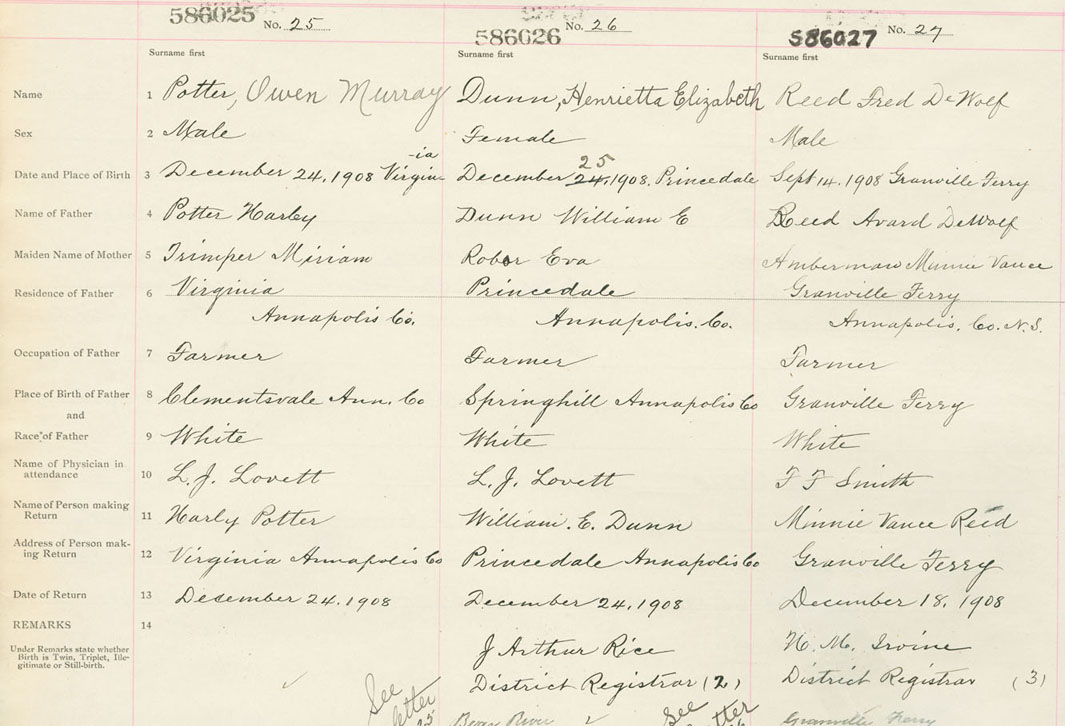 586025 No. 25 586026 No. 26 586027 No. 27
Surname first Surname first Surname first
Name 1 Potter, Owen Murray Dunn, Henrietta Elizabeth Reed Fred DeWolf
Sex 2 Male Female Male
-ia 25
Date and Place of Birth 3 December 24, 1908 Virginia December 24, 1908. Princedale Sept 14. 1908 Granville Ferry
Name of Father 4 Potter Harley Dunn William E Reed Avard DeWolf
Maiden Name of Mother 5 Trimper Miriam Robar Eva Amberman Minnie Vance
Residence of Father 6 Virginia Princedale Granville Ferry
Annapolis Co. Annapolis. Co. Annapolis. Co. N.S.
Occupation of Father 7 Farmer Farmer Farmer
Place of Birth of Father 8 Clementsvale Ann. Co Springhill Annapolis Co Granville Ferry
and
Race of Father 9 White White White
Name of Physician in
attendance 10 L. J. Lovett L. J. Lovett F F Smith
Name of Person making
Return 11 Harly Potter William. E. Dunn Minnie Vance Reed
Address of Person mak-
ing Return 12 Virginia Annapolis Co Princedale Annapolis Co Granville Ferry
Date of Return 13 December 24, 1908 December 24, 1908 December 18, 1908
REMARKS 14
Under Remarks state whether
Birth is Twin, Triplet, Ille-
gitimate or Still-birth.
J Arthur Rice N. M. Irvine
District Registrar (2) District Registrar (3)
See See
letter letter
25
Bear River Granville Ferry